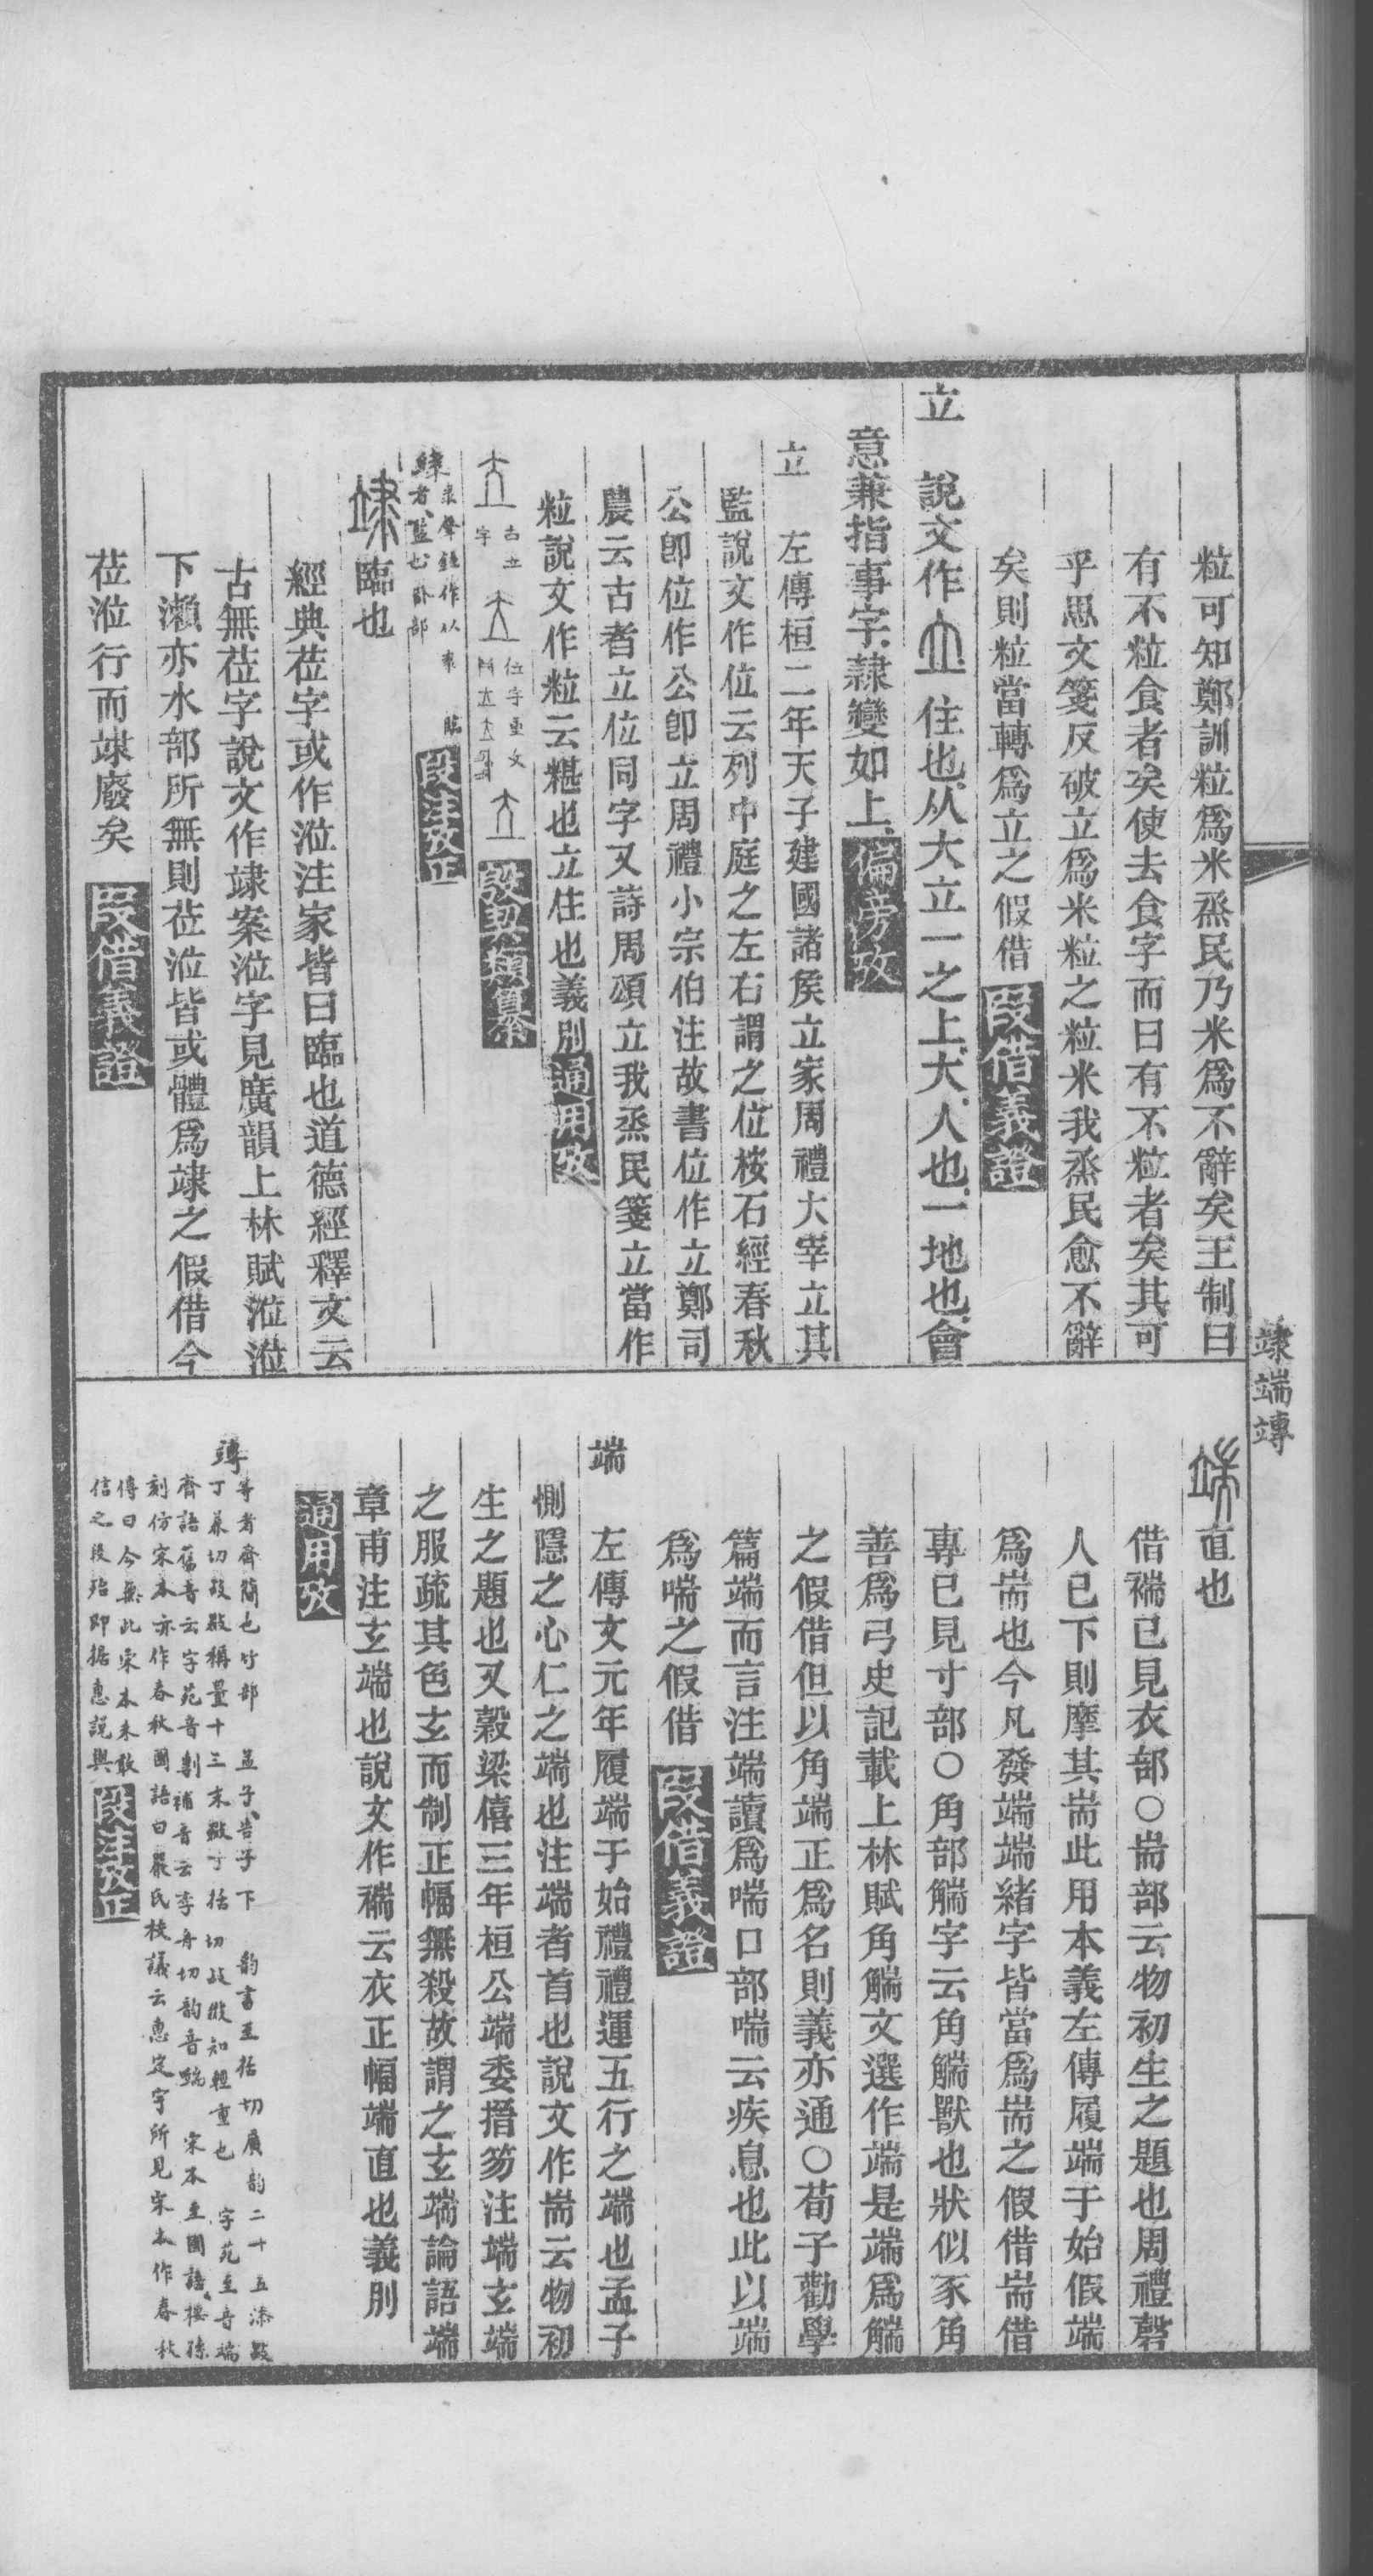 粒可知鄭訓粒爲米烝民乃米爲不辭矣王制曰
有不粒食者矣使去食字而曰有不粒者矣其可
乎思文箋反破立爲米粒之粒米我烝民愈不辭
矣則粒當轉爲立之假借 叚借義證
立 說文作 住也从大立一之上大人也一地也會
意兼指事字隸變如上 偏旁攷
立 左傳桓二年天子建國諸侯立家周禮大宰立其
監說文作位云列中庭之左右謂之位桉石經春秋
公卽位作公卽立周禮小宗伯注故書位作立鄭司
農云古者立位同字又詩周頌立我烝民箋立當作
粒說文作粒云糂也立住也義別 通用攷
古立字 位字重文 殷契類纂
段注攷正
臨也
經典莅字或作涖注家皆曰臨也道德經釋文云
古無莅字說文作竦案涖字見廣韻上林賦涖涖
下瀨亦水部所無則莅涖皆或體爲竦之假借今
莅涖行而竦廢矣 叚借義證
竦端竱
直也
借褍已見衣部○耑部云物初生之題也周禮磬
人已下則摩其耑此用本義左傳履端于始假端
爲耑也今凡發端端緒字皆當爲耑之假借耑借
專已見寸部○角部觿字云角觿獸也狀似豕角
善爲弓史記載上林賦角觿文選作端是端爲觿
之假借但以角端正爲名則義亦通○荀子勸學
篇端而言注端讀爲喘口部喘云疾息也此以端
爲喘之假借 叚借義證
端 左傳文元年履端于始禮禮運五行之端也孟子
惻隱之心仁之端也注端者首也說文作耑云物初
生之題也又穀梁僖三年桓公端委搢笏注端玄端
之服疏其色玄而制正幅無殺故謂之玄端論語端
章甫注玄端也說文作褍云衣正幅端直也義別
通用攷
竱 等者齊簡也竹部 孟子告子下 韵書至括切廣韵二十五添敁
丁兼切敁敠稱量十三末敠丁括切敁敠知輕重也 字苑至舟端
齊語舊音云字苑音剸補音云李舟切韵音端 宋本至國語
刻仿宋本亦作春秋國語曰嚴氏校議云惠定宇所見宋本作春秋
傳曰今無此宋本未敢
信之段殆卽据惠說與 段注攷正